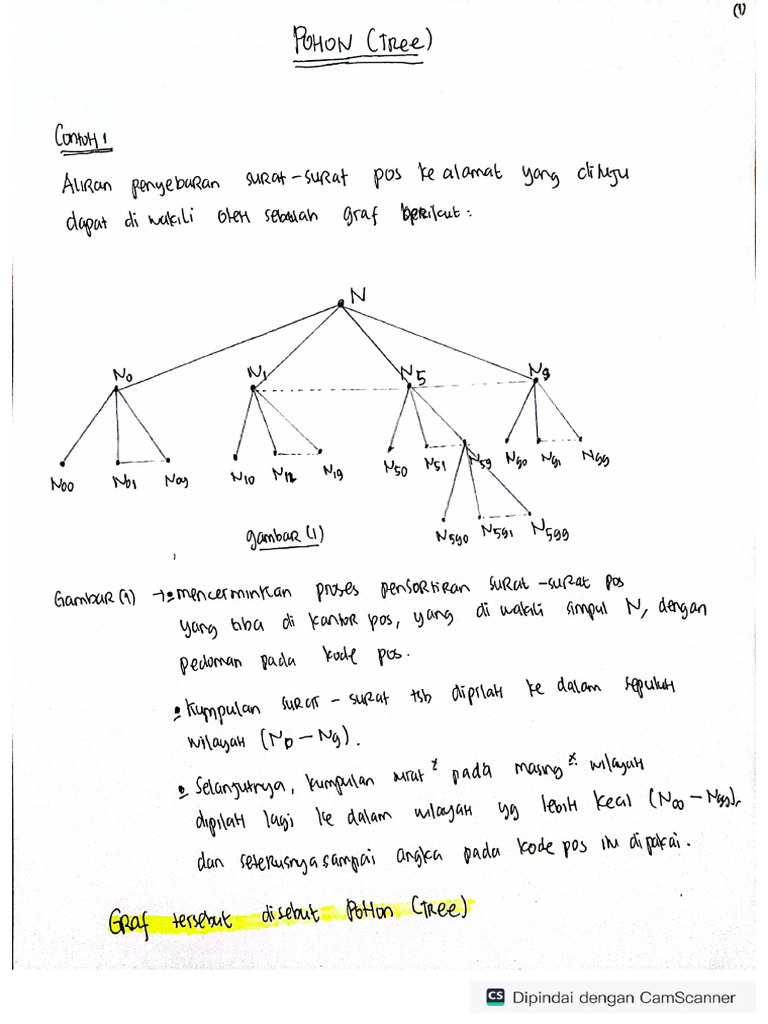 (1)
POHON (Tree)
Contoh 1
Aliran penyebaran surat-surat pos ke alamat yang dituju
dapat di wakili oleh sebuah graf berikut:
N
N0 N1 N5 N9
N00 N01 N09 N10 N12 N19 N50 N51 N59 N90 N91 N99
N590 N591 N599
gambar (1)
Gambar (1) → • mencerminkan proses pensortiran surat-surat pos
yang tiba di kantor pos, yang di wakili simpul N, dengan
pedoman pada kode pos.
• Kumpulan surat-surat tsb dipilah ke dalam sepuluh
wilayah (N0 – N9).
• Selanjutnya, kumpulan surat² pada masing² wilayah
dipilah lagi ke dalam wilayah yg lebih kecil (N00 – N99),
dan seterusnya sampai angka pada kode pos itu dipakai.
Graf tersebut disebut Pohon (Tree)
CS Dipindai dengan CamScanner